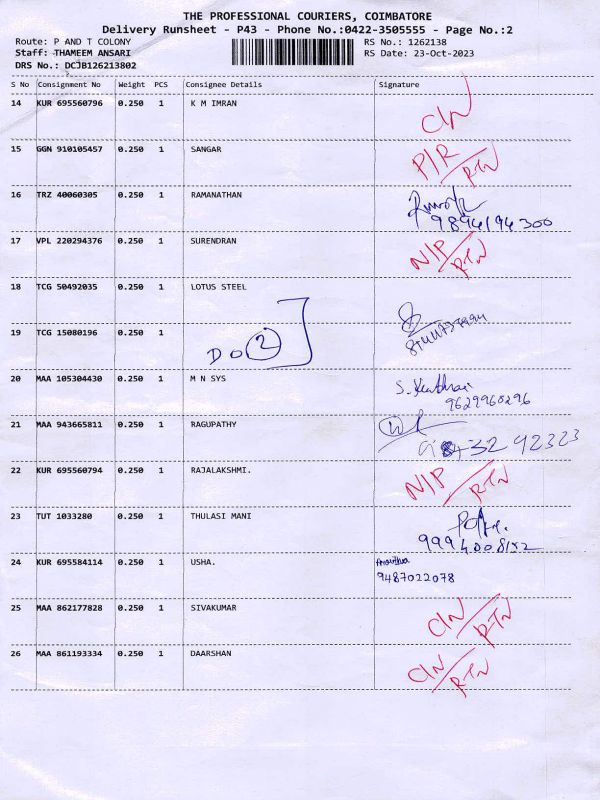 THE PROFESSIONAL COURIERS, COIMBATORE
Delivery Runsheet - P43 - Phone No.:0422-3505555 - Page No.:2
Route: P AND T COLONY RS No.: 1262138
Staff: THAMEEM ANSARI RS Date: 23-Oct-2023
DRS No.: DCJB126213802
S No Consignment No Weight PCS Consignee Details Signature
14 KUR 695560796 0.250 1 K M IMRAN
C/N
15 GGN 910105457 0.250 1 SANGAR
P/R
RTN
16 TRZ 40060305 0.250 1 RAMANATHAN
9894194300
17 VPL 220294376 0.250 1 SURENDRAN
N/P
RTN
18 TCG 50492035 0.250 1 LOTUS STEEL
19 TCG 15080196 0.250 1
DO 2
20 MAA 105304430 0.250 1 M N SYS
9629960296
21 MAA 943665811 0.250 1 RAGUPATHY
22 KUR 695560794 0.250 1 RAJALAKSHMI.
N/P
RTN
23 TUT 1033280 0.250 1 THULASI MANI
24 KUR 695584114 0.250 1 USHA.
9487022078
25 MAA 862177828 0.250 1 SIVAKUMAR
C/N
RTN
26 MAA 861193334 0.250 1 DAARSHAN
C/N
RTN